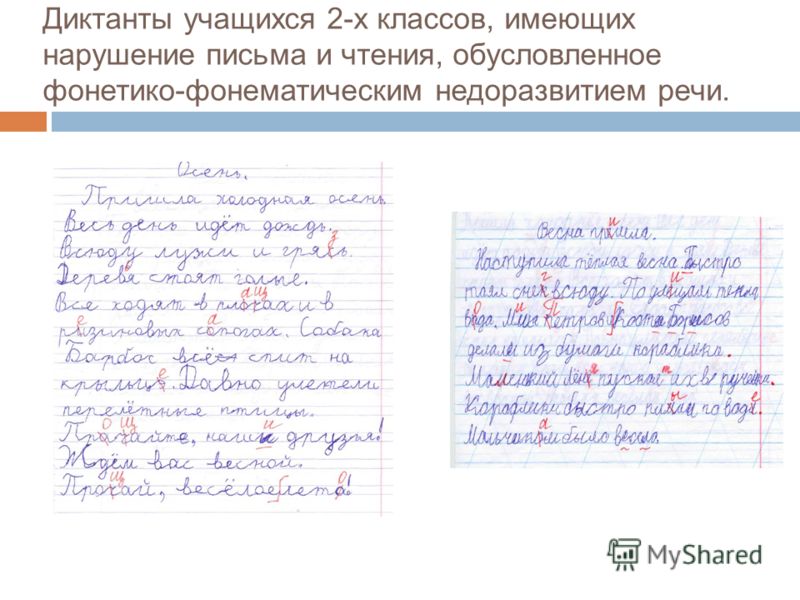 Диктанты учащихся 2-х классов, имеющих
нарушение письма и чтения, обусловленное
фонетико-фонематическим недоразвитием речи.
Осень.
Пришла холодная осень
Весь день идёт дождь.
Всюду лужи и грясь.
Деревя стоят голые.
Все ходят в и в
ризиновых сопогах. Собака
Барбос всё спит на
крыльце. Давно улетели
перелётные птицы.
Прачайте, наши друзья!
Ждём вас весной.
Прочай, весёлае лето!
Весна пришла.
Наступила тёплая весна. Быстро
таял снек всюду. По
вада. Петров Костя Борисов
делали из бумаги кораблики.
Маленький
Кораблики быстро по воде.
Мальчикам было весело.
MyShared